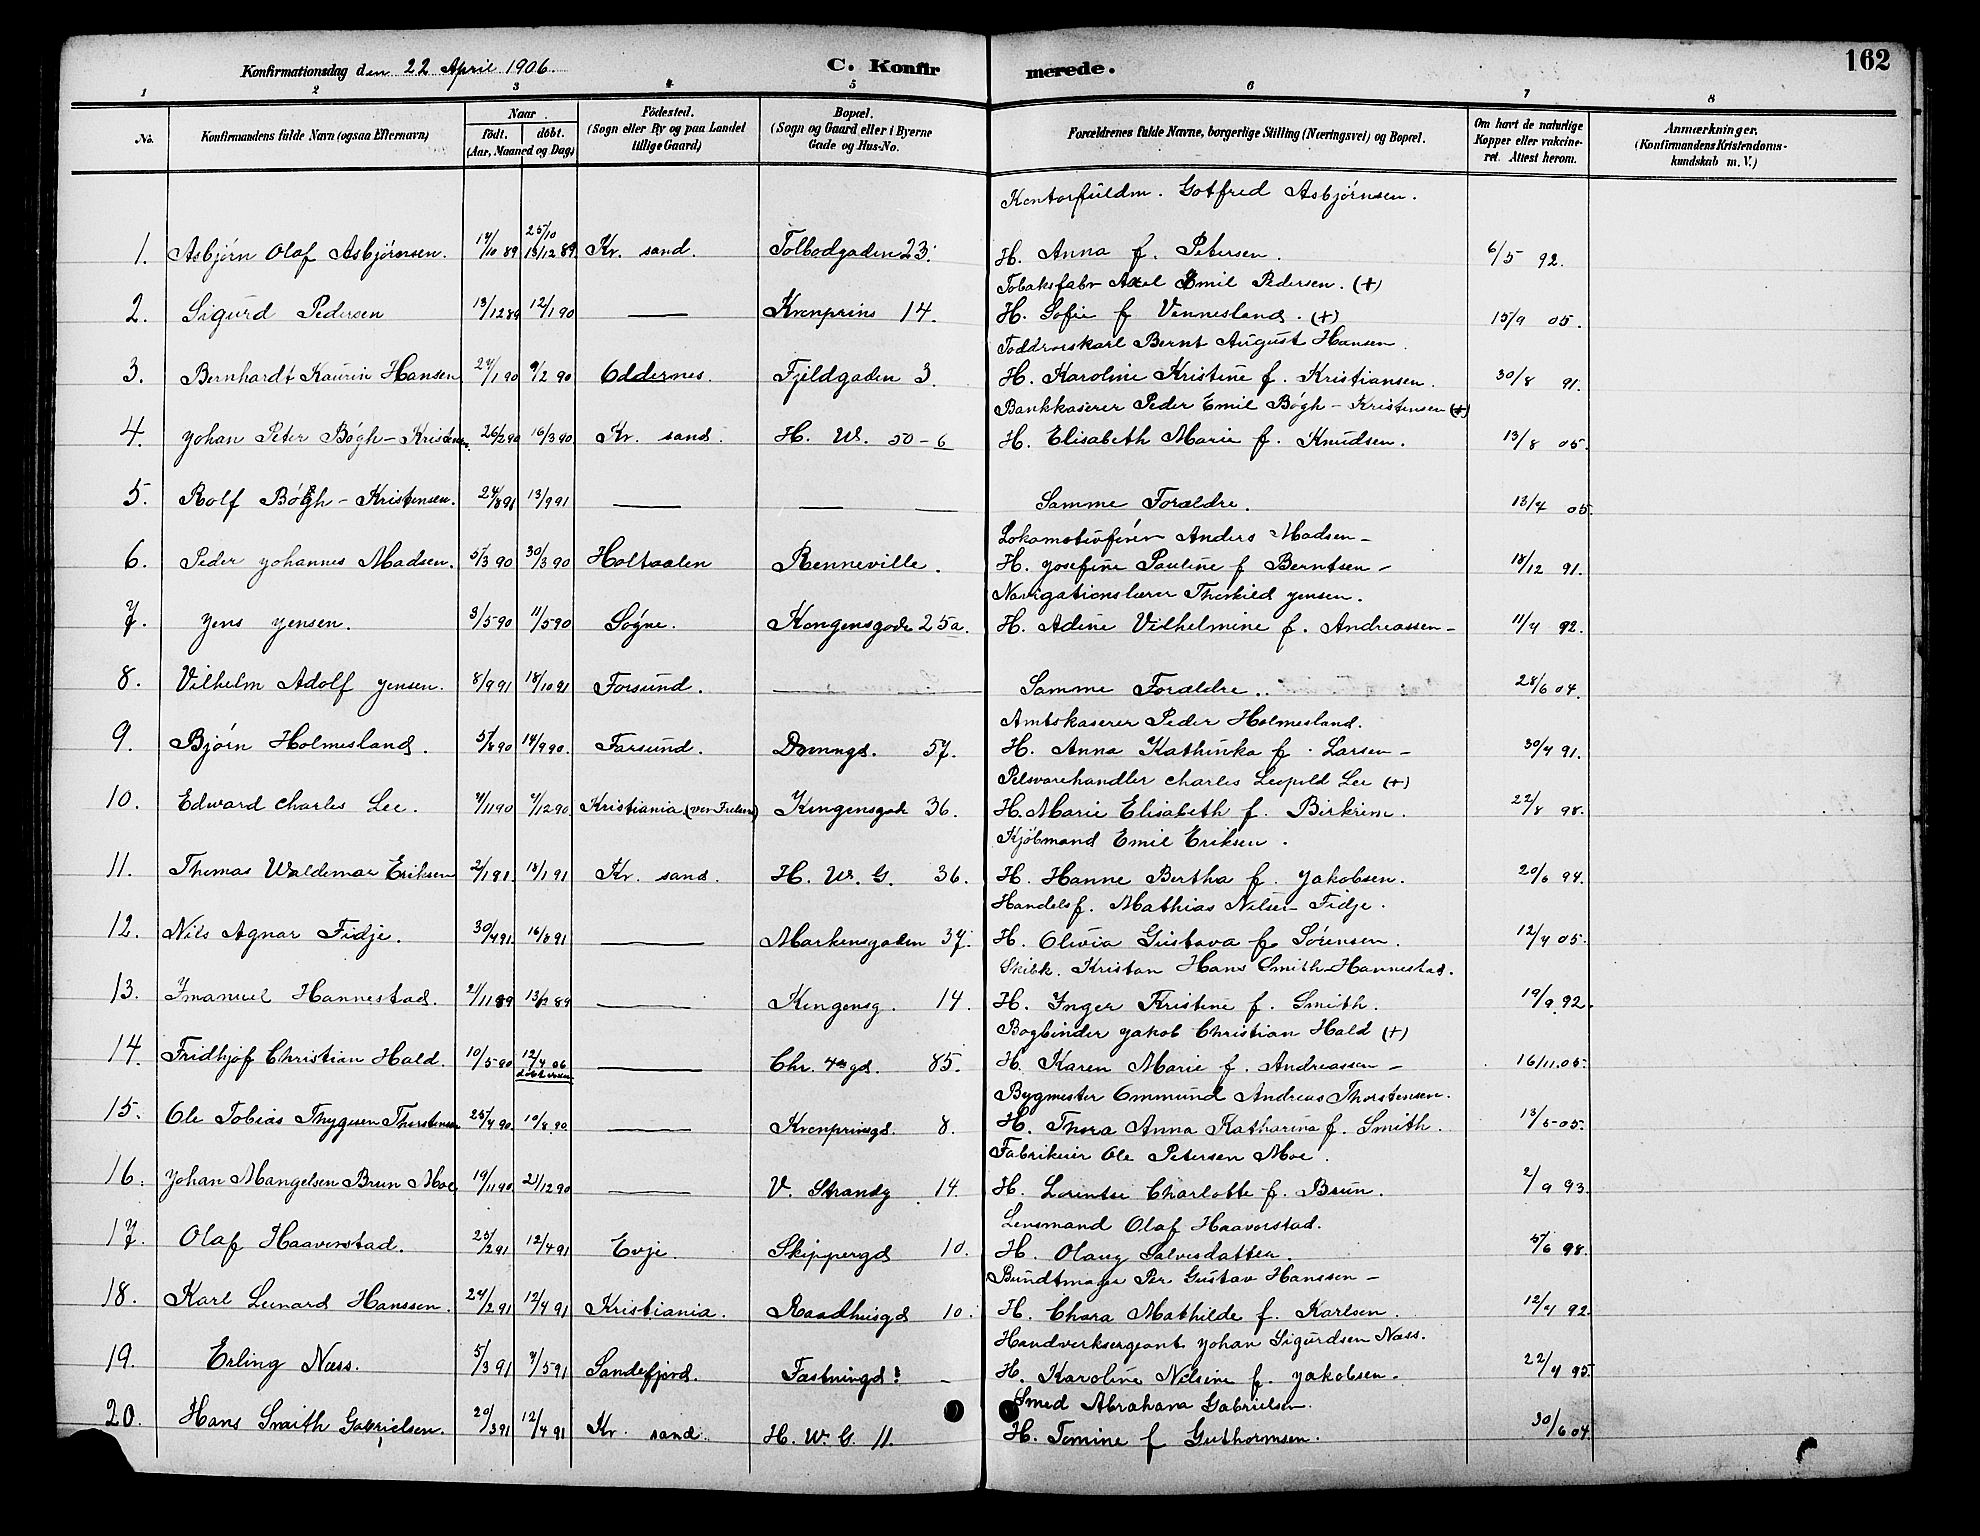 Konfirmationsdag den 22 April 1906. C. Konfirmerede. 162
1 2 3 4 5 6 7 8
No. Konfirmandens fulde Navn (ogsaa Efternavn) Naar født. døbt. (Aar, Maaned og Dag) Födested. (Sogn eller By og paa Landet tillige Gaard) Bopæl. (Sogn og Gaard eller i Byerne Gade og Hus-No. Forældrenes fulde Navne, borgerlige Stilling (Næringsvei) og Bopæl. Om havt de naturlige Kopper eller vaccineret. Attest herom. Anmærkninger. (Konfirmandens Kristendomskundskab m. V.)
Kontorfuldm. Gotfred Asbjørnsen.
1. Asbjørn Olaf Asbjørnsen. 14/10 89 25/10 13/12 89 Kr. sand. Tolbodgaden 23. H. Anna f. Petersen. 6/5 92.
Tobaksfabr Axel Emil Pedersen. (+)
2. Sigurd Pedersen 13/12 89 12/1 90 — Kronprins 14. H. Sofie f Vennesland. (+) 15/9 05.
Toddrorskarl Bernt August Hansen.
3. Bernhardt Kaurin Hansen 24/1 90 9/2 90 Oddernes. Fjeldgaden 3. H. Karoline Kristine f. Kristiansen. 30/8 91.
Bankkaserer Peder Emil Bøgh-Kristensen (+)
4. Johan Peter Bøgh-Kristensen. 26/2 90 16/3 90 Kr. sand. H. W. 50-6 H. Elisabeth Marie f. Knudsen. 13/8 05.
5. Rolf Bøgh-Kristensen. 24/8 91 13/9 91 — — — Samme Forældre. 13/4 05.
Lokomotivfører Anders Madsen-
6. Peder Johannes Madsen. 5/3 90 30/3 90 Holtaalen Renneville. H. Josefine Pauline f Berntsen- 18/12 91.
Navigationslærer Thorkild Jensen.
7. Jens Jensen. 3/5 90 11/5 90 Søgne. Kongensgade 25a. H. Adine Vilhelmine f. Andreassen- 11/4 92.
8. Vilhelm Adolf Jensen. 8/9 91 18/10 91 Forsund. — Samme Forældre.. 28/6 04.
Amtskaserer Peder Holmesland.
9. Bjørn Holmesland. 5/8 90 14/9 90. Farsund. Dronngd. 57. H. Anna Kathinka f. Larsen- 30/4 91.
Pelsvarehandler Charles Leopold Lee (+)
10. Edward Charles Lee. 4/11 90 4/12 90 Kristiania (vor Frelsers) Kongensgade 36. H. Marie Elisabeth f. Birkrim. 22/8 98.
Kjøbmand Emil Eriksen.
11. Thomas Waldemar Eriksen 2/1 91. 18/1 91 Kr. sand. H. W. G. 36. H. Hanne Bertha f. Jakobsen. 20/6 94.
Handelsf. Mathias Nilsen Fidje.
12. Nils Agnar Fidje. 30/4 91 16/8 91 — Markensgaden 37. H. Olivia Gustava f. Sørensen. 12/4 05.
Skibk. Kristan Hans Smith-Hannestad.
13. Imanuel Hannestad. 2/11 89 13/12 89 — Kongensg. 14. H. Inger Kristine f. Smith. 19/9 92.
Bogbinder Jakob Christian Hald (+)
14. Fridhjof Christian Hald. 10/5 90 12/4 06 — Chr. 4des gd. 85. H. Karen Marie f. Andreassen- 16/11.05.
Bygmester Ommund Andreas Thorstensen.
15. Ole Tobias Thygesen Thorstensen 25/4 90. 10/8 90 — Kronprinsgd. 8. H. Thora Anna Katharina f. Smith. 13/5-05.
Fabrikeier Ole Petersen Moe.
16. Johan Mangelsen Brun Moe 19/11 90 21/12 90 — V. Strandg. 14. H. Lorentse Charlotte f. Brun. 2/9 93.
Lensmand Olaf Haaverstad.
17. Olaf Haaverstad. 25/2 91 12/4 91 Evje. Skippergd 10. H. Olaug Salvesdatter. 5/6 98.
Bundtmager Per Gustav Hanssen-
18. Karl Leonard Hanssen. 24/2 91 12/4 91 Kristiania. Raadhusgd 10. H. Chara Mathilde f. Karlsen. 12/4 92.
Handverksergeant Johan Sigurdsen Næss.
19. Erling Næss. 5/3 91 4/5 91 Sandefjord. Fæstningd: — H. Karoline Nilsine f. Jakobsen. 22/4 95.
Smed Abraham Gabrielsen.
20. Hans Smith Gabrielsen. 20/3 91 12/4 91 Kr. sand. H. W. G. 11. H. Tomine f Guthormsen. 30/6 04.